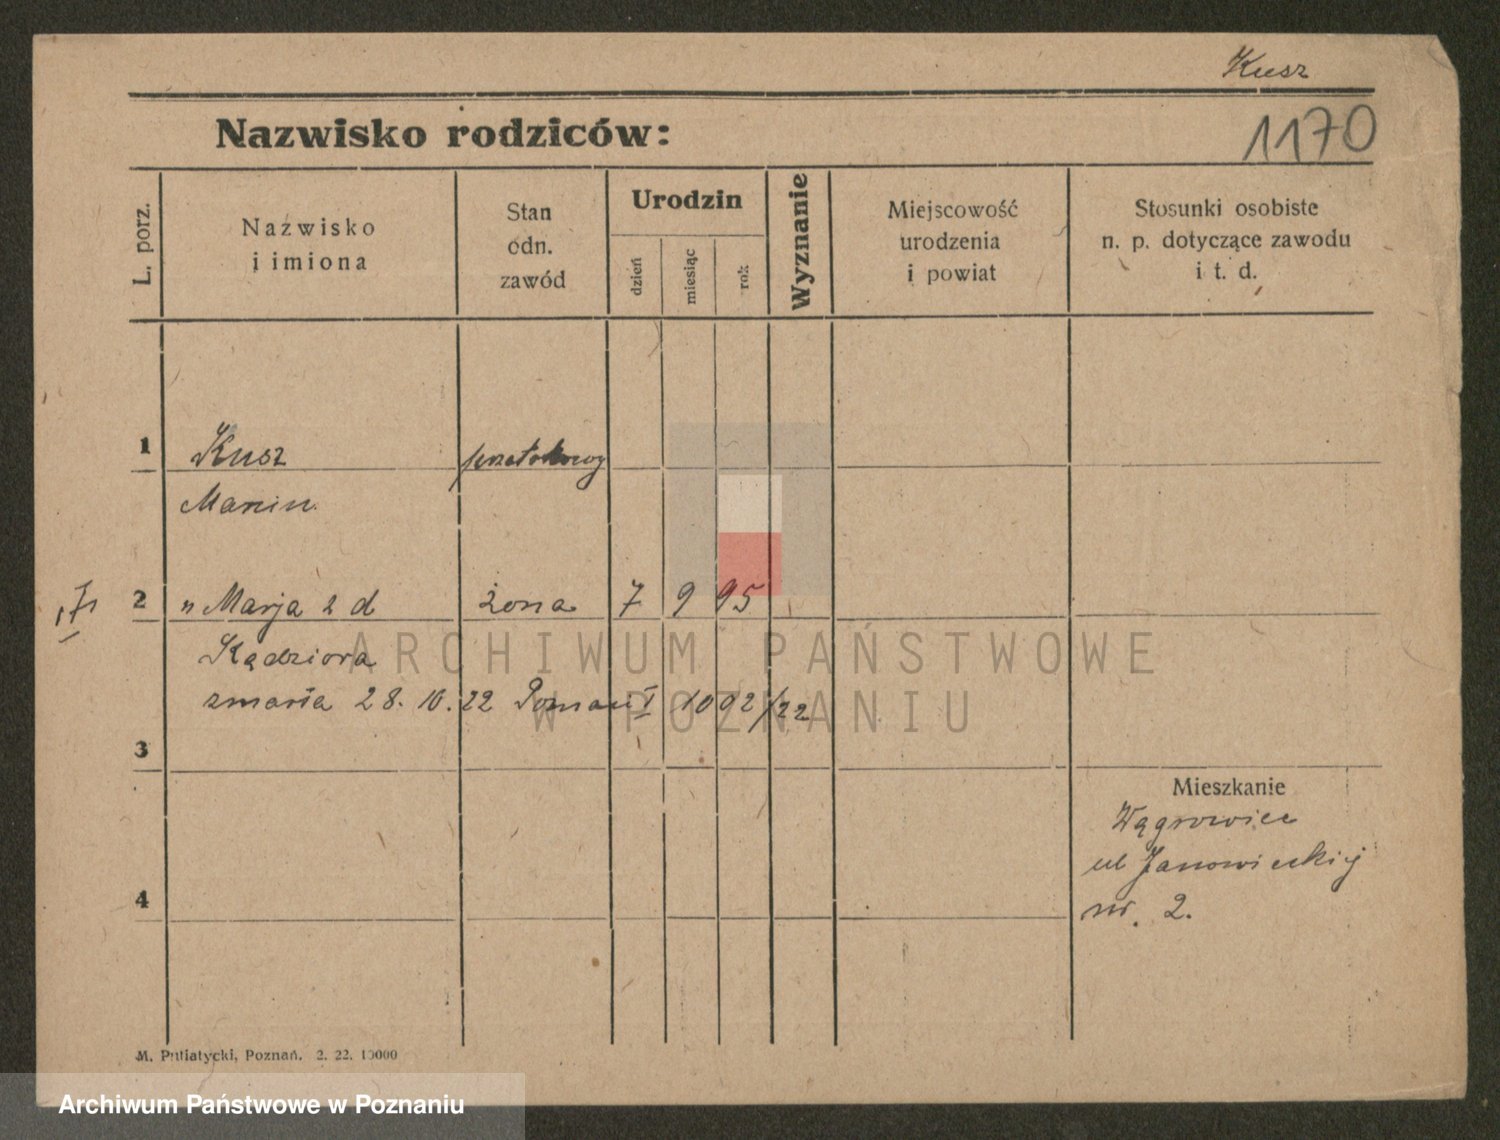 Kusz
Nazwisko rodziców:
1170
L. porz.
Nazwisko
i imiona
Stan
odn.
zawód
Urodzin
dzień
miesiąc
rok
Wyznanie
Miejscowość
urodzenia
i powiat
Stosunki osobiste
n. p. dotyczące zawodu
i t. d.
1 Kusz
Marcin
2 " Marja 2 d żona 7 9 95
Kądziora
zmarła 28. 10. 22 Poznań I 1002/22
3
Mieszkanie
Wągrowiec
ul Janowieckiej
nr. 2.
4
M. Putiatycki, Poznań. 2. 22. 10000
ARCHIWUM PAŃSTWOWE
W POZNANIU
Archiwum Państwowe w Poznaniu